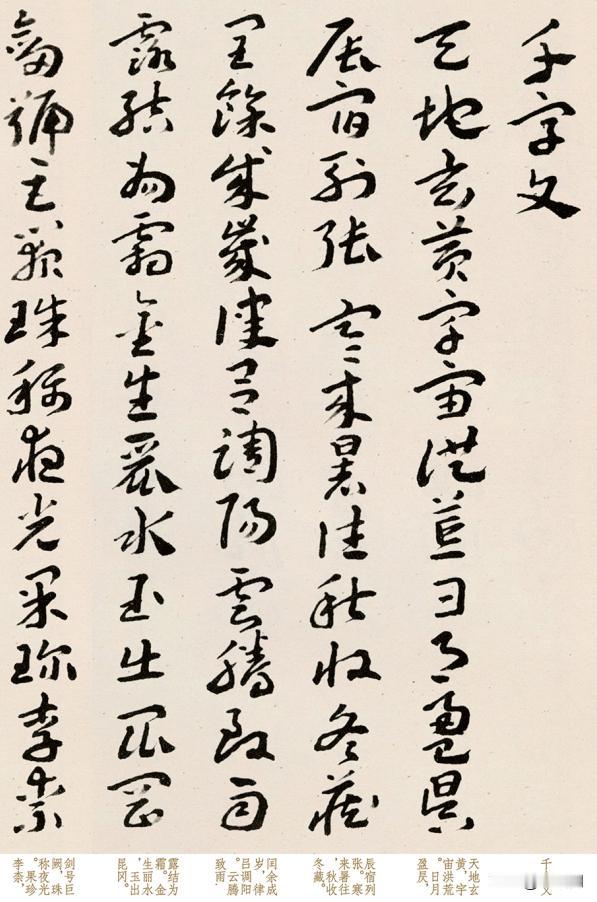 千字文
天地玄黃宇宙洪荒日月盈昃
辰宿列張寒來暑往秋收冬藏
閏餘成歲律呂調陽雲騰致雨
露結為霜金生麗水玉出崑岡
劍號巨闕珠稱夜光果珍李柰
千字文
天地玄
黄，宇
宙洪荒
。日月
盈昃，
辰宿列
张。寒
来暑往
，秋收
冬藏。
闰余成
岁，律
吕调阳
。云腾
致雨，
露结为
霜。金
生丽水
，玉出
昆冈。
剑号巨
阙，珠
称夜光
。果珍
李柰，